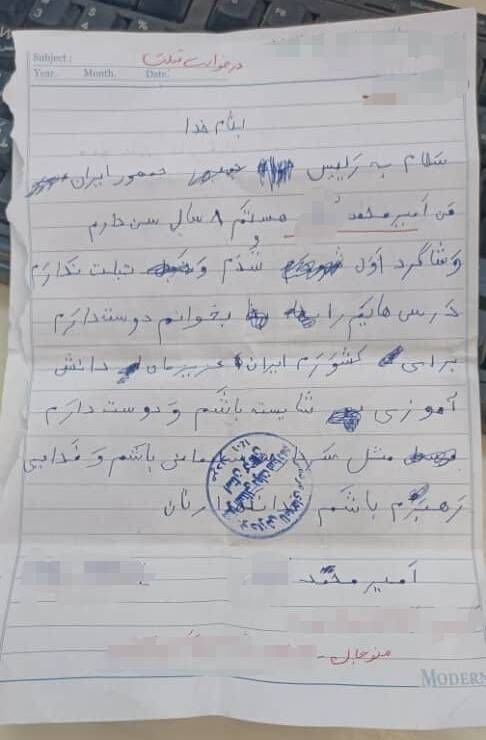 Subject: درخواست تبلت
Year. Month. Date:
بنام خدا
سلام به رئیس جمهور ایران
من امیرمحمد هستم ۸ سال سن دارم
و شاگرد اول شدم و تبلت ندارم
درس هایم را بخوانم دوست دارم
برای کشورم ایران عزیزمان دانش
آموزی شایسته باشم و دوست دارم
مثل سردار سلیمانی باشم و فدایی
رهبرم باشم
امیرمحمد
MODERN